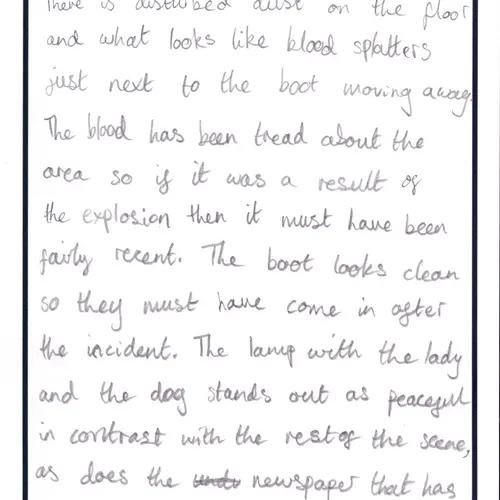 There is disturbed dust on the floor
and what looks like blood splatters
just next to the boot moving away.
The blood has been tread about the
area so if it was a result of
the explosion then it must have been
fairly recent. The boot looks clean
so they must have come in after
the incident. The lamp with the lady
and the dog stands out as peaceful
in contrast with the rest of the scene,
as does the newspaper that has